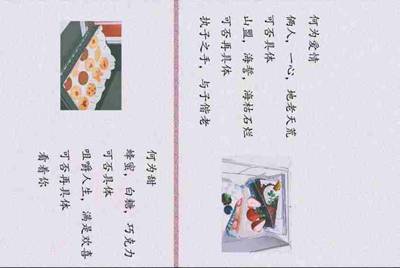 何为爱情
俩人,一心,地老天荒
可否具体
山盟,海誓,海枯石烂
可否再具体
执子之手,与子偕老
何为甜
蜂蜜,白糖,巧克力
可否具体
咀嚼人生,满是欢喜
可否再具体
看着你